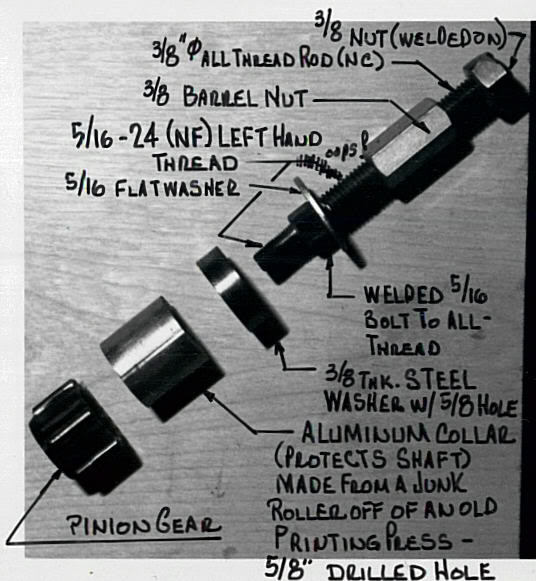 3/8 NUT (WELDED ON)
3/8" Φ ALL THREAD ROD (NC)
3/8 BARREL NUT
5/16-24 (NF) LEFT HAND
THREAD
oops!
5/16 FLATWASHER
WELDED 5/16
BOLT TO ALL-
THREAD
3/8 THK. STEEL
WASHER W/ 5/8 HOLE
ALUMINUM COLLAR
(PROTECTS SHAFT)
MADE FROM A JUNK
ROLLER OFF OF AN OLD
PRINTING PRESS -
5/8" DRILLED HOLE
PINION GEAR